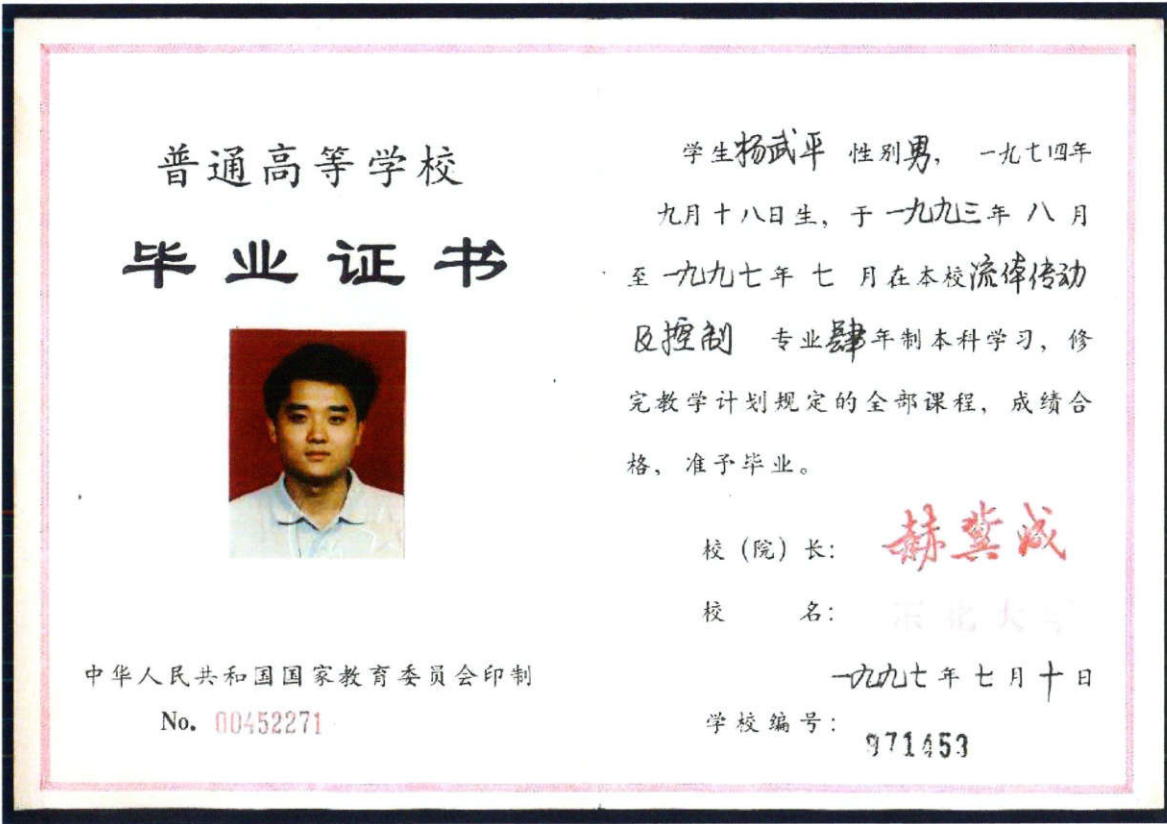 普通高等学校
毕业证书
中华人民共和国国家教育委员会印制
No. 00452271
学生杨武平 性别男， 一九七四年
九月十八日生，于一九九三年 八 月
至一九九七年 七 月在本校流体传动
及控制 专业肆年制本科学习，修
完教学计划规定的全部课程，成绩合
格，准予毕业。
校（院）长： 赫冀成
校 名： 东北大学
一九九七年七月十日
学校编号： 971453